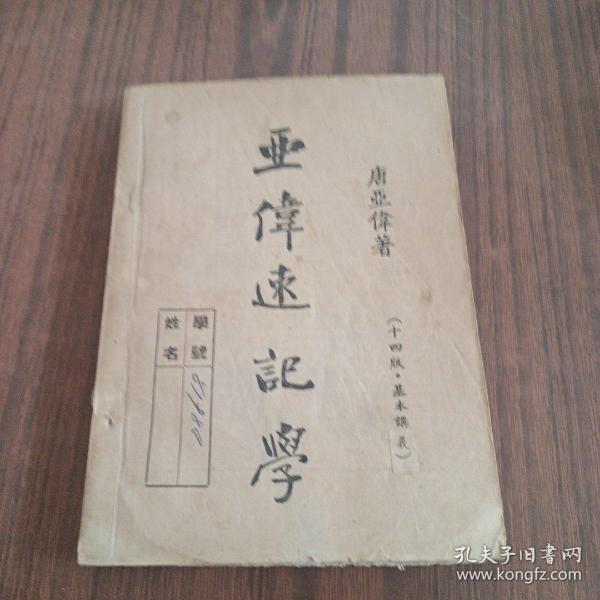 唐亞偉著
(十四版·基本講義)
亞偉速記學
學號
姓名
孔夫子旧书网
www.kongfz.com